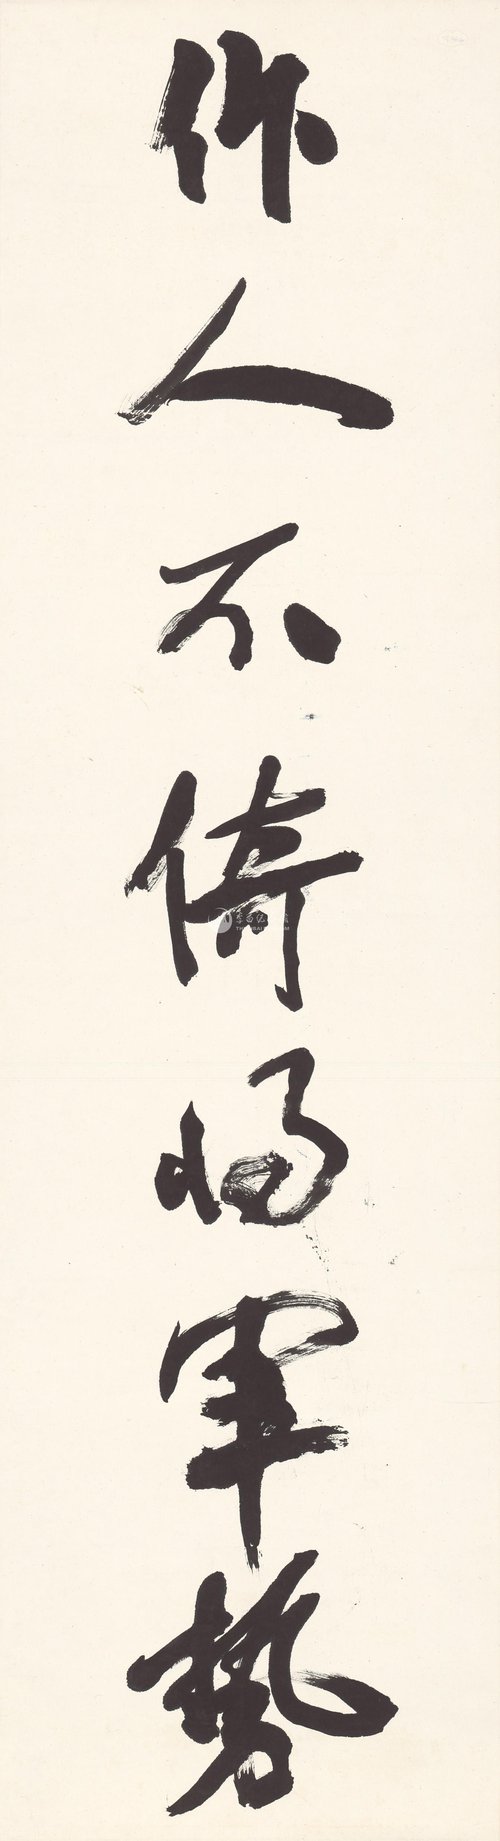 作人不倚將軍勢